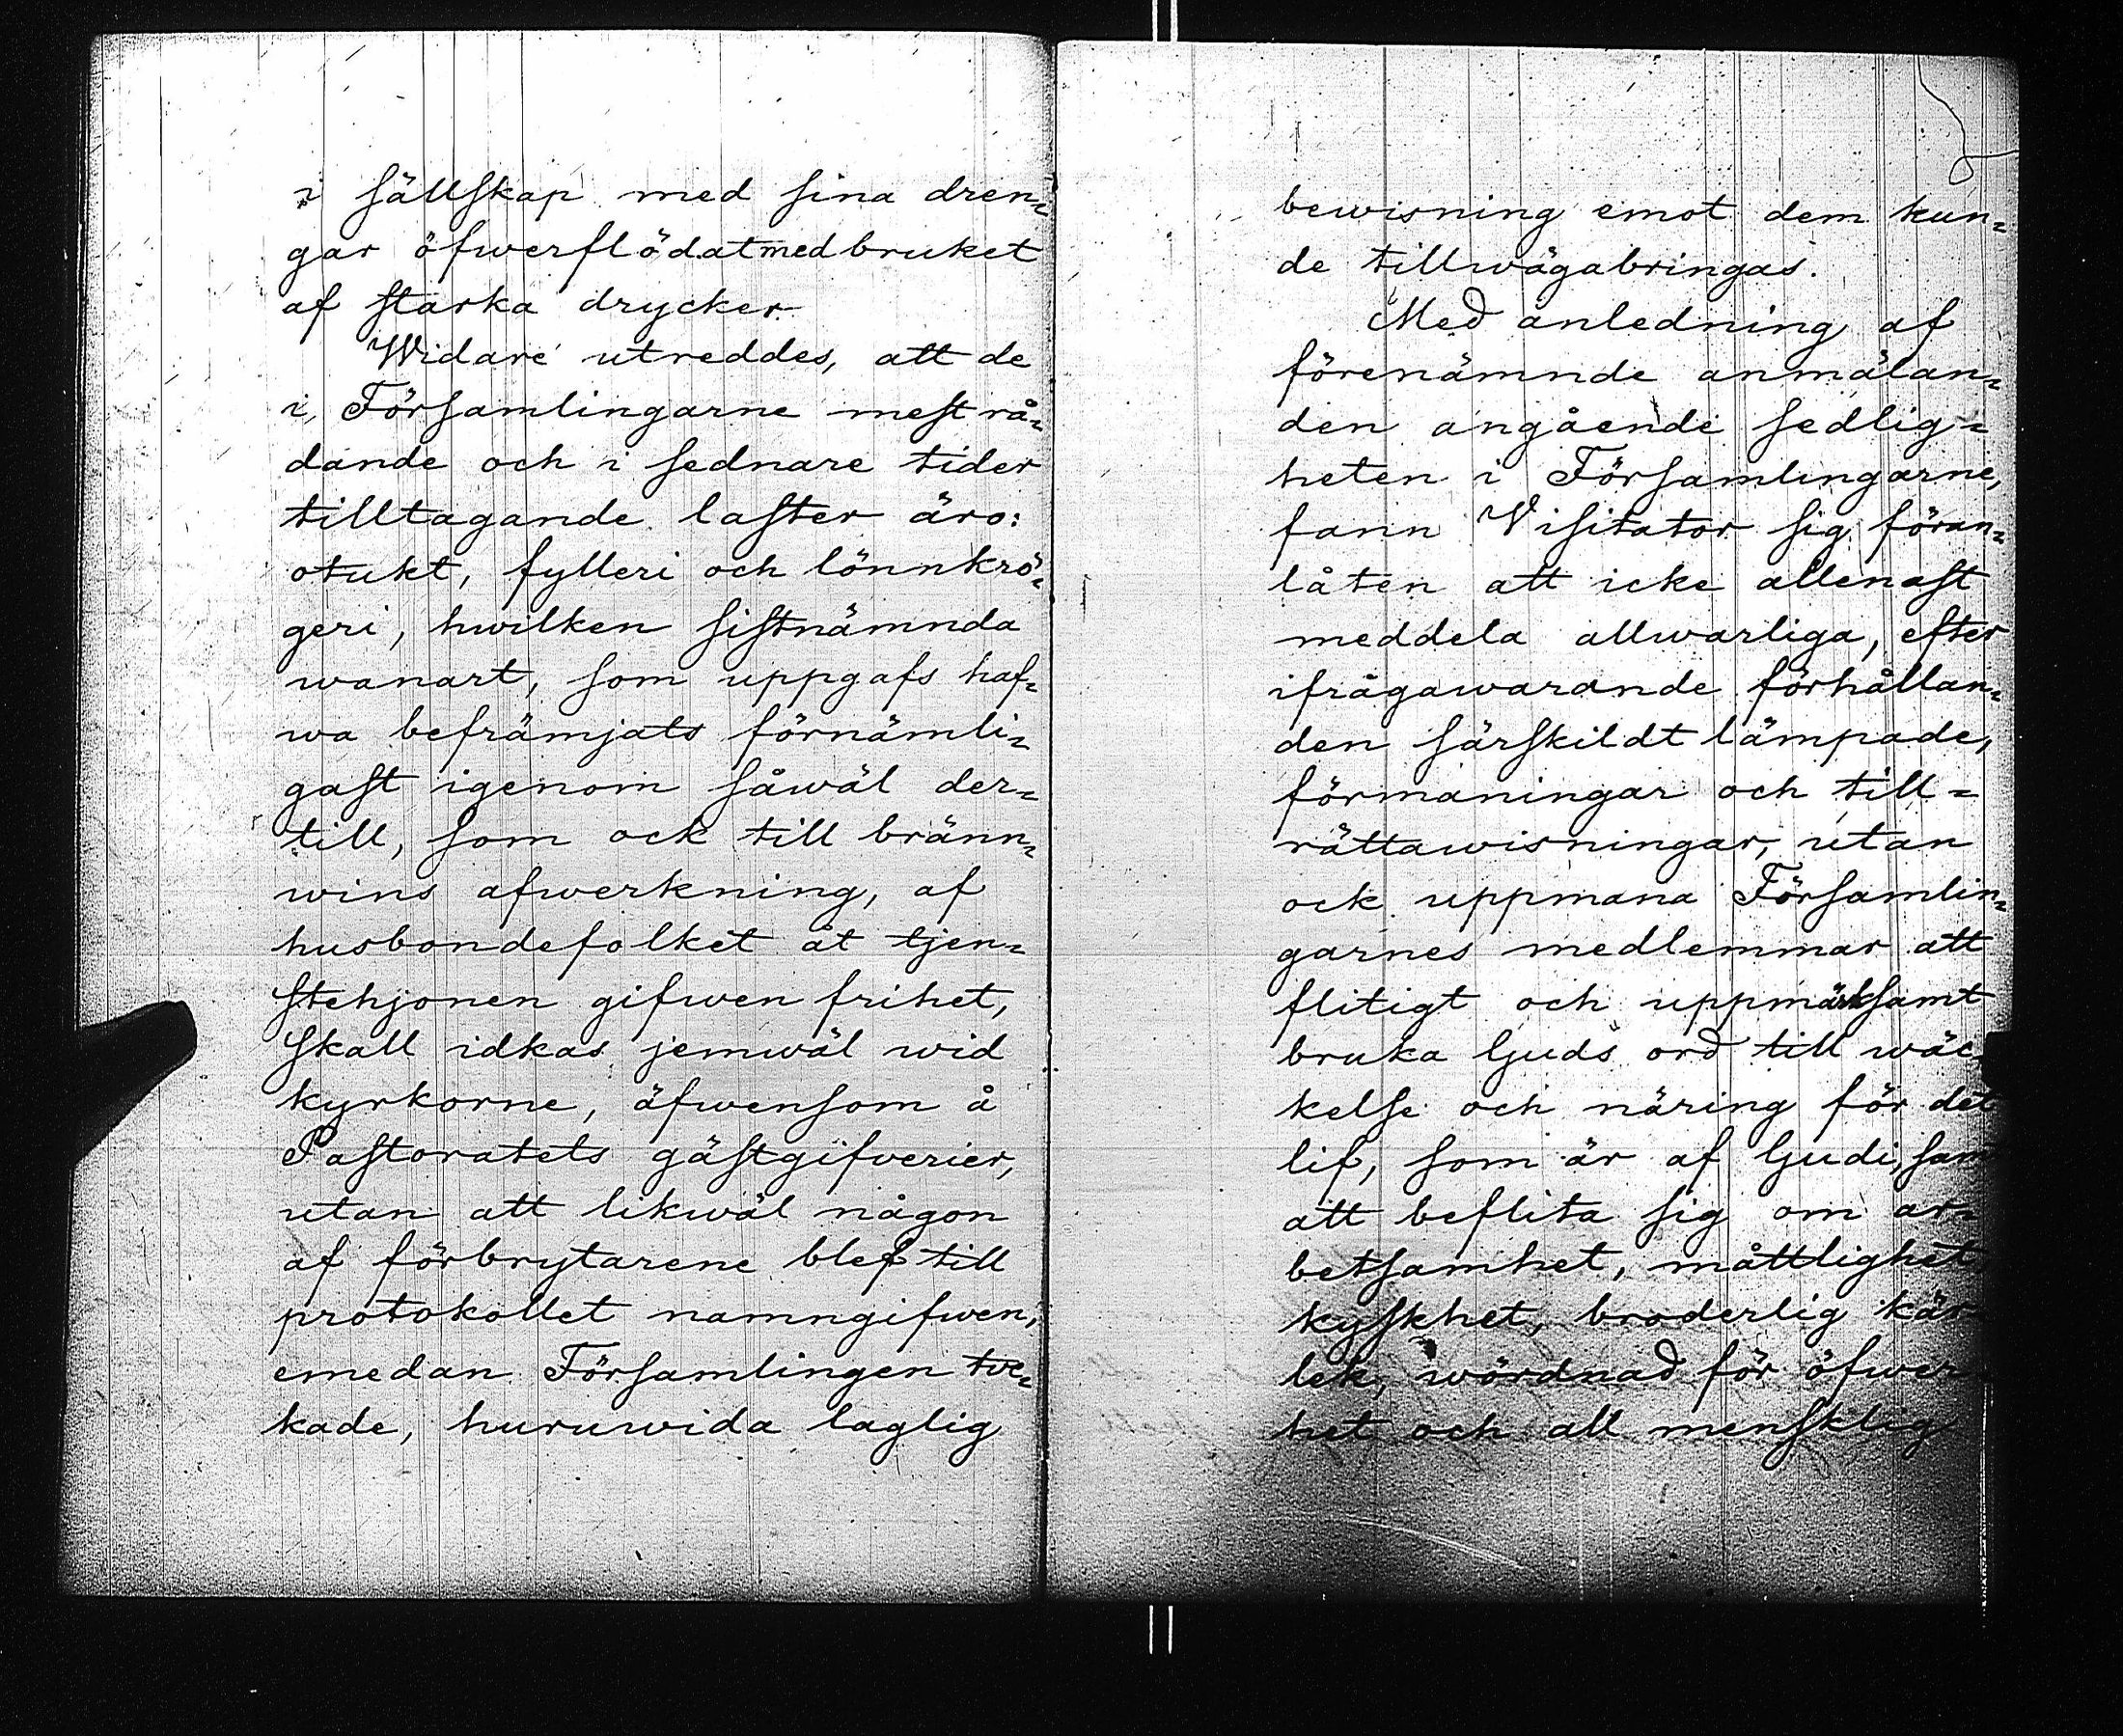 i sällskap med sina dren=
gar öfwerflödat med bruket
af starka drycker.
Widare utreddes, att de
i Församlingarne mest rå=
dande och i sednare tider
tilltagande laster äro:
otukt, fylleri och lönnkrö=
geri, hwilken sistnämnda
wanart, som uppgafs haf=
wa befrämjats förnämli=
gast igenom såwäl der=
till, som ock till bränn=
wins afwerkning, af
husbondefolket åt tjen=
stehjonen gifwen frihet,
skall idkas jemwäl wid
kyrkorne, äfwensom å
Pastoratets gästgifverier,
utan att likwäl någon
af förbrytarene blef till
protokollet namngifwen,
emedan Församlingen twe=
kade, huruwida laglig
bewisning emot dem kun=
de tillwägabringas.
Med anledning af
förenämnde anmälan=
den angående sedlig=
heten i Församlingarne,
fann Visitator sig föran=
låten att icke allenast
meddela allwarliga, efter
ifrågawarande förhållan=
den särskildt lämpade,
förmaningar och till=
rättawisningar, utan
ock uppmana Församlin=
garnes medlemmar att
flitigt och uppmärksamt
bruka Guds ord till wäc=
kelse och näring för det
lif, som är af Gudi, samt
att beflita sig om ar=
betsamhet, måttlighet,
kyskhet, broderlig kär=
lek, wördnad för öfwer=
het och all mensklig